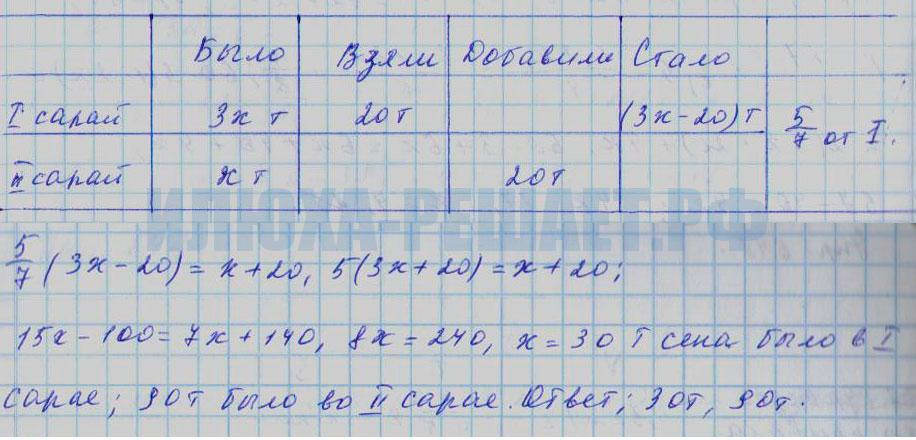 Было Взяли Добавили Стало
I сарай 3x т 20т (3x-20)т 5/7 от I.
II сарай x т 20т
ИЛЮХА-РЕШАЕТ.РФ
5/7 (3x-20)=x+20, 5(3x+20)=x+20;
15x-100=7x+140, 8x=240, x=30 т сена было в I
сарае; 90т было во II сарае. Ответ; 30т, 90т.